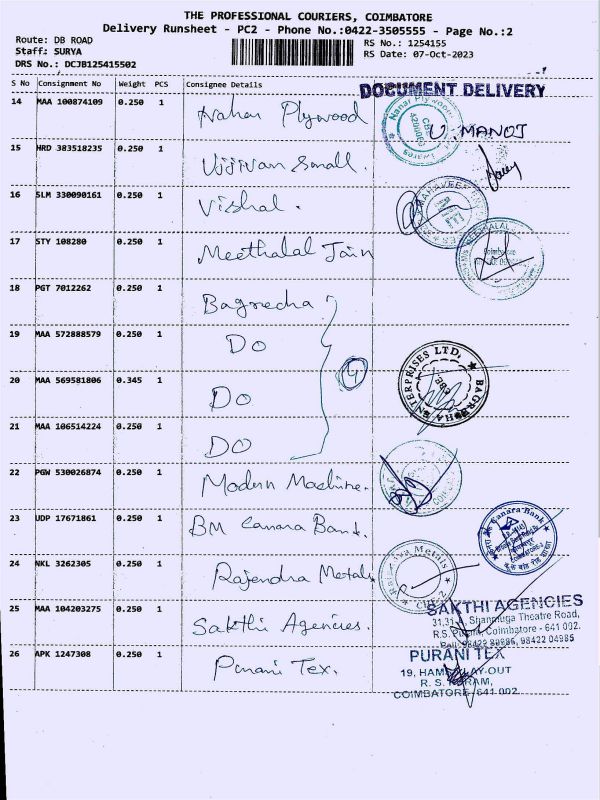 THE PROFESSIONAL COURIERS, COIMBATORE
Delivery Runsheet - PC2 - Phone No.:0422-3505555 - Page No.:2
Route: DB ROAD
Staff: SURYA
DRS No.: DCJB125415502
RS No.: 1254155
RS Date: 07-Oct-2023
S No Consignment No Weight PCS Consignee Details
DOCUMENT DELIVERY
14 MAA 100874109 0.250 1 Nahar Plywood
U. MANOJ
15 HRD 383518235 0.250 1 Ujjivan Small.
16 SLM 330090161 0.250 1 Vishal.
17 STY 108280 0.250 1 Meethalal Jain
18 PGT 7012262 0.250 1 Bagrecha
19 MAA 572888579 0.250 1 DO
20 MAA 569581806 0.345 1 DO
21 MAA 106514224 0.250 1 DO
4
ENTERPRISES LTD. ★ BAGRECHA
22 PGW 530026874 0.250 1 Modern Machine.
23 UDP 17671861 0.250 1 BM Canara Bank.
Canara Bank
24 NKL 3262305 0.250 1 Rajendra Metals
Metals
25 MAA 104203275 0.250 1 Sakthi Agencies.
SAKTHI AGENCIES
31, Shanmuga Theatre Road,
R.S. Puram, Coimbatore - 641 002.
98422 04985
26 APK 1247308 0.250 1 Purani Tex.
PURANI TEX
LAY-OUT
R. S. PURAM,
COIMBATORE-641 002